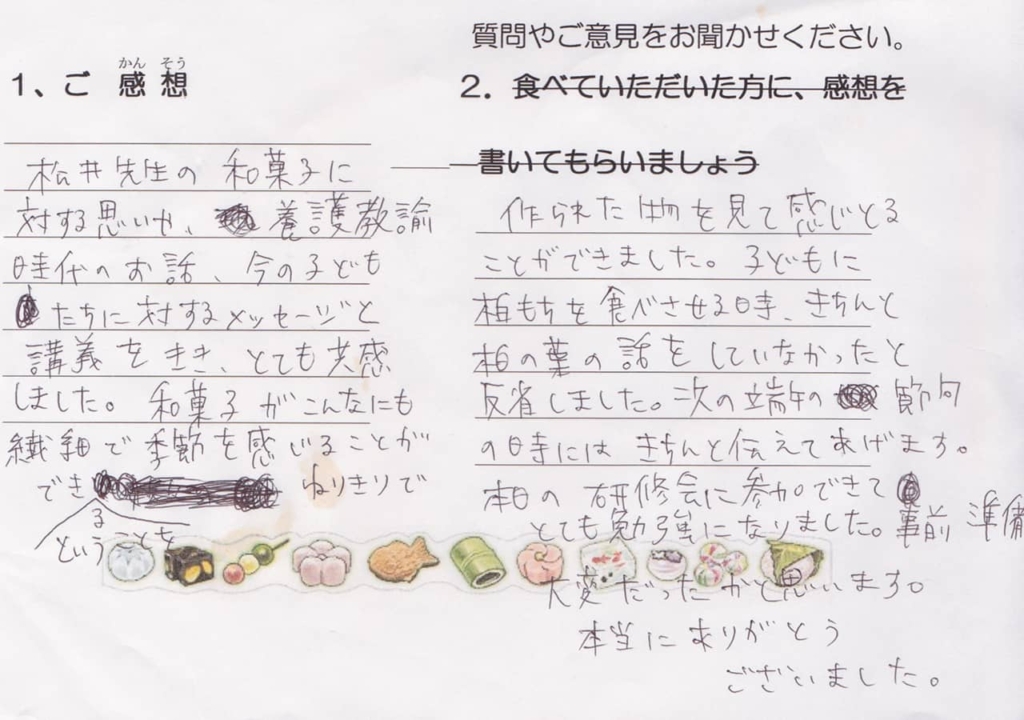 質問やご意見をお聞かせください。
1、ご感想
かん そう
2. 食べていただいた方に、感想を
書いてもらいましょう
松井先生の 和菓子に
対する思いや、養護教諭
時代のお話、今の子ども
たちに対するメッセージと
講義をきき、とても共感
しました。和菓子がこんなにも
繊細で季節を感じることが
でき
るということを
ねりきりで
作られた物を見て感じとる
ことができました。子どもに
柏もちを食べさせる時、きちんと
柏の葉の話をしていなかったと
反省しました。次の端午の節句
の時には きちんと伝えてあげます。
本日の研修会に参加できて
とても勉強になりました。事前準備
大変だったかと思います。
本当にありがとう
ございました。